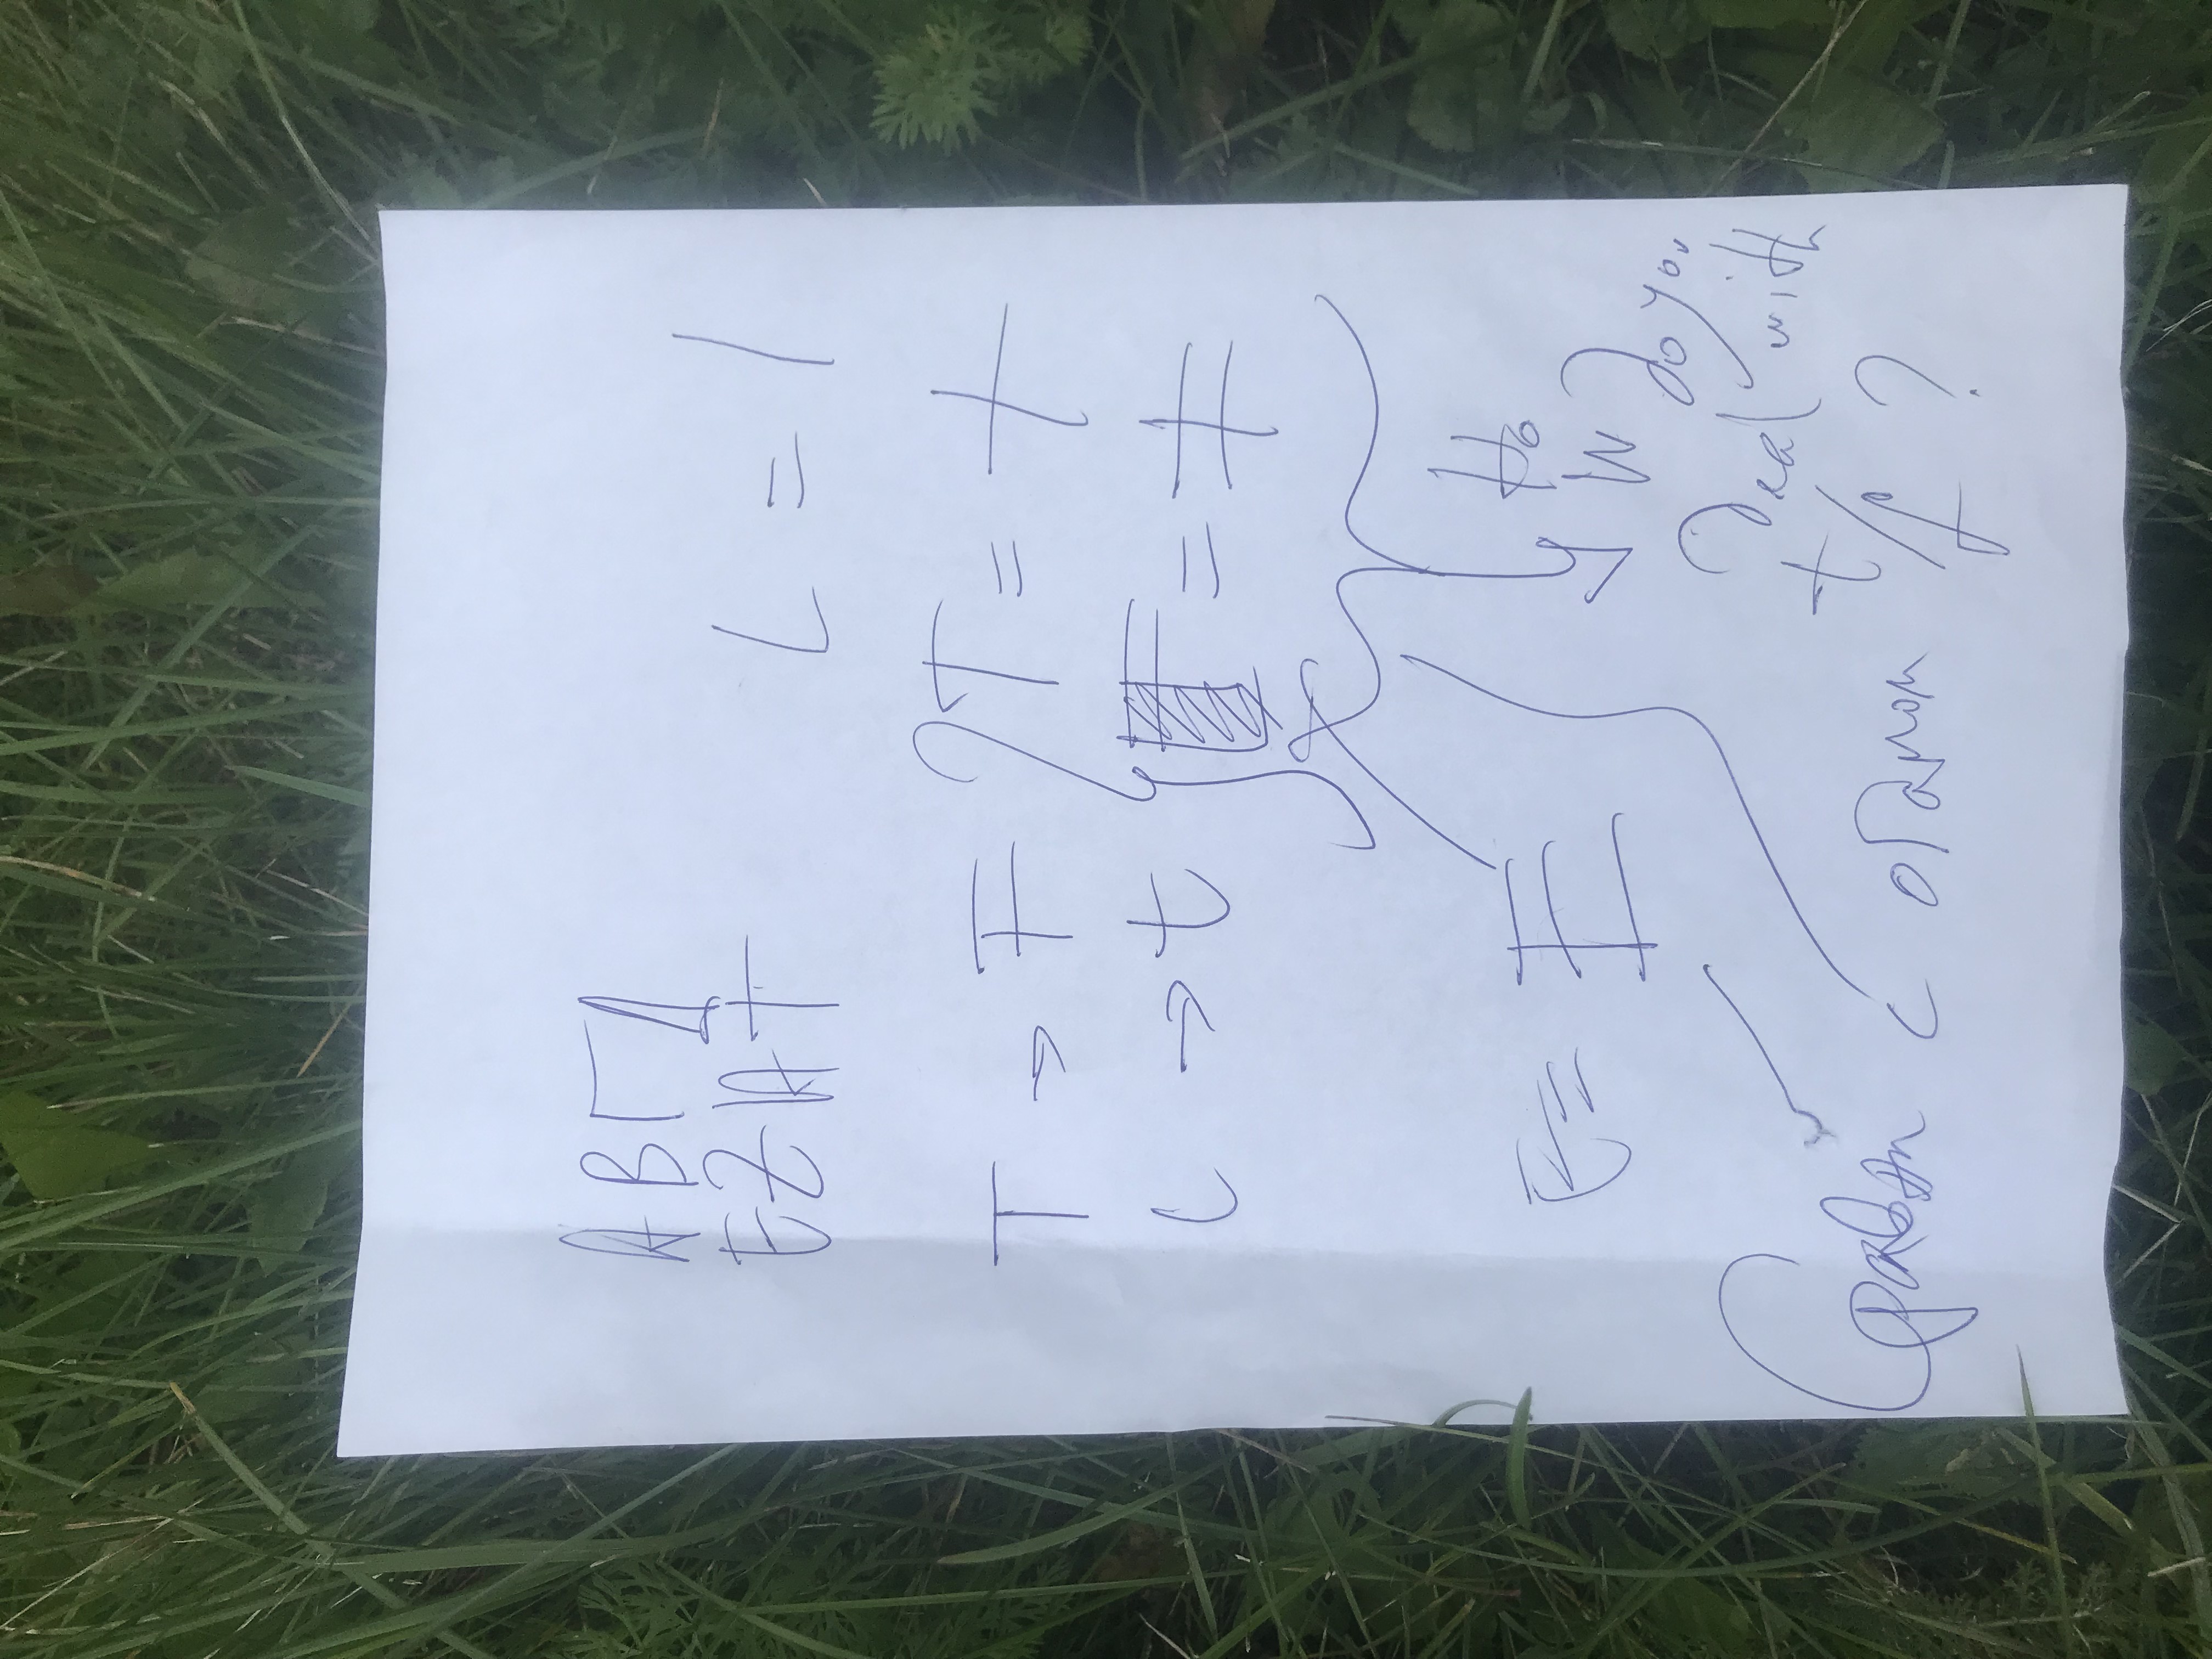 ΑΒΓΔ
EZHT
L = l
T → F
T = +
ι → t
= ǂ
E = E
Ho
w do you
deal with
t/f ?
Сравни с огамом